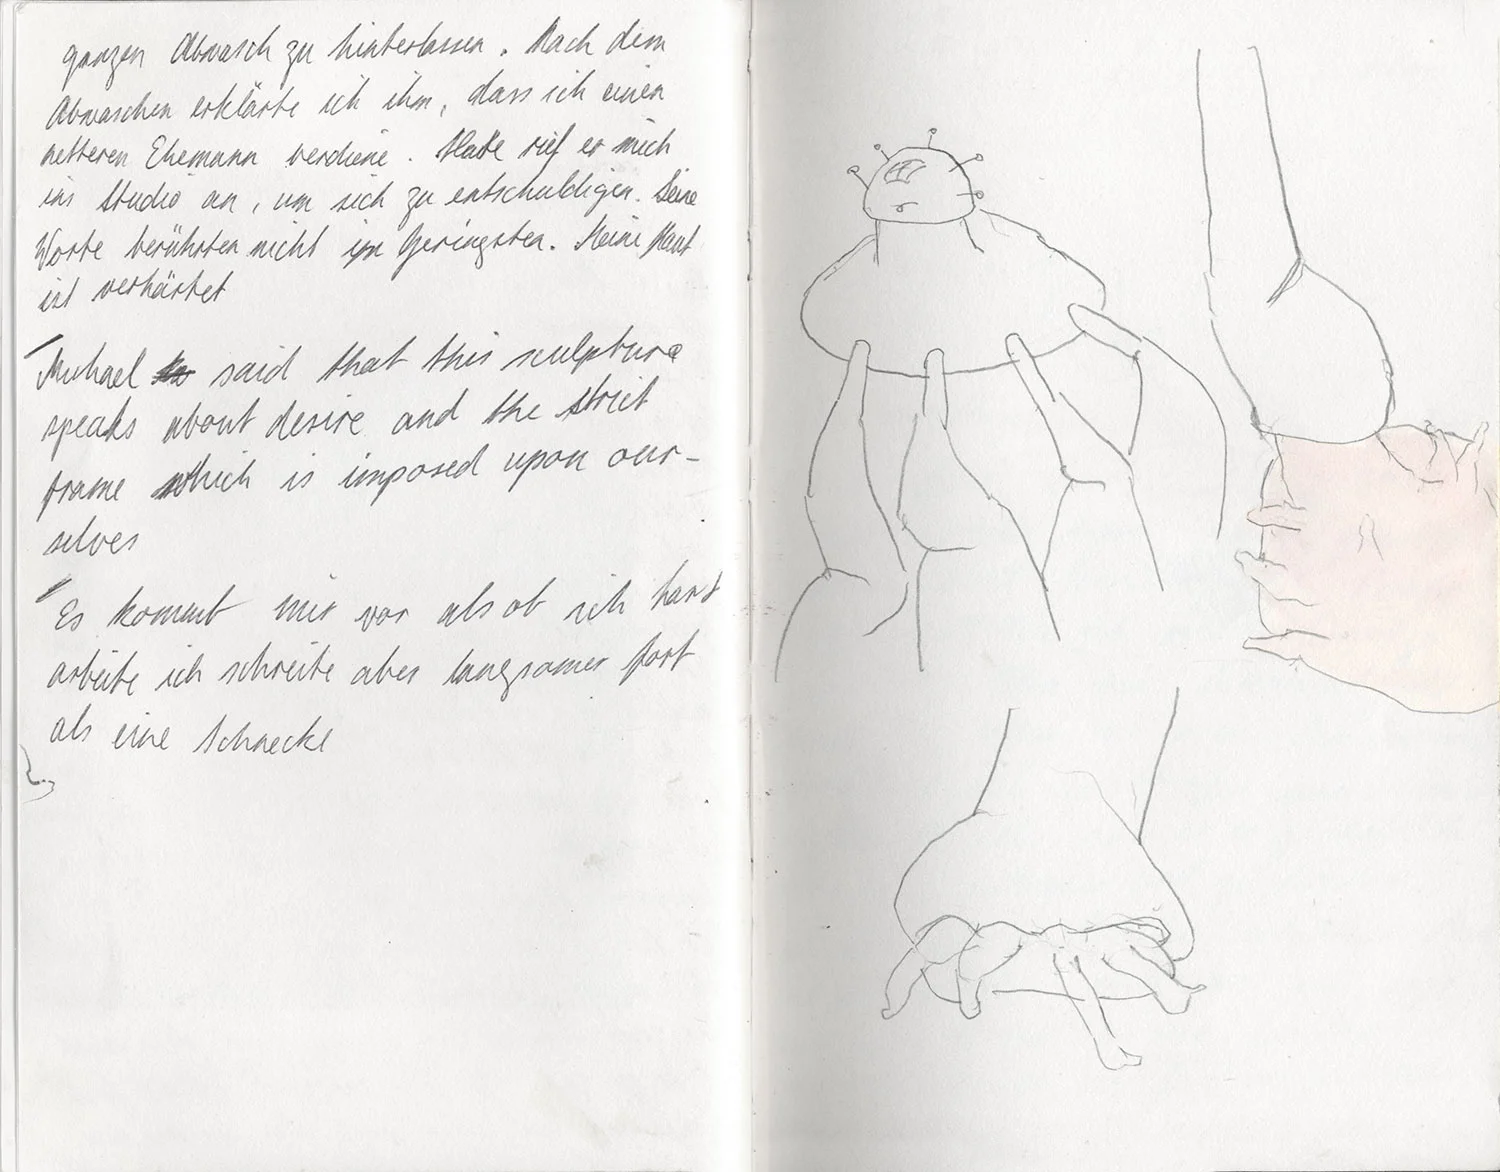 ganzen Abwasch zu hinterlassen. Nach dem
Abwaschen erklärte ich ihm, dass ich einen
netteren Ehemann verdiene. Heute rief er mich
ins Studio an, um sich zu entschuldigen. Seine
Worte berührten nicht im Geringsten. Meine Haut
ist verhärtet
Michael said that this sculpture
speaks about desire and the strict
frame which is imposed upon our-
selves
Es kommt mir vor als ob ich hart
arbeite ich schreite aber langsamer fort
als eine Schnecke